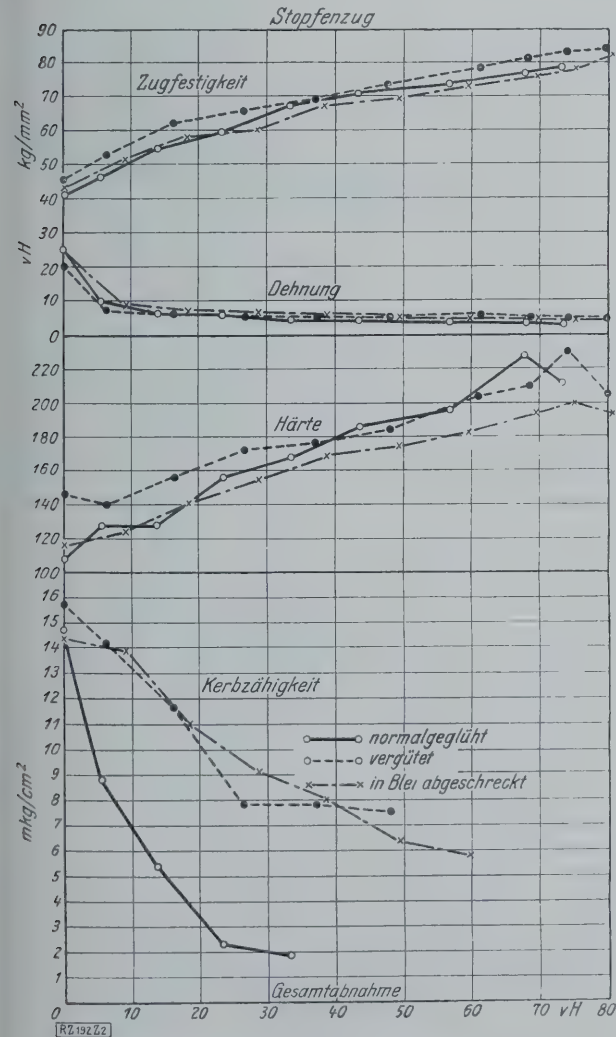 Stopfenzug
90
80
70
60
50
40
30
20
10
0
kg/mm²
vH
Zugfestigkeit
Dehnung
220
200
180
160
140
120
100
Härte
16
15
14
13
12
11
10
9
8
7
6
5
4
3
2
1
mkg/cm²
Kerbzähigkeit
normalgeglüht
vergütet
in Blei abgeschreckt
Gesamtabnahme
0 10 20 30 40 50 60 70 vH 80
RZ192Z2